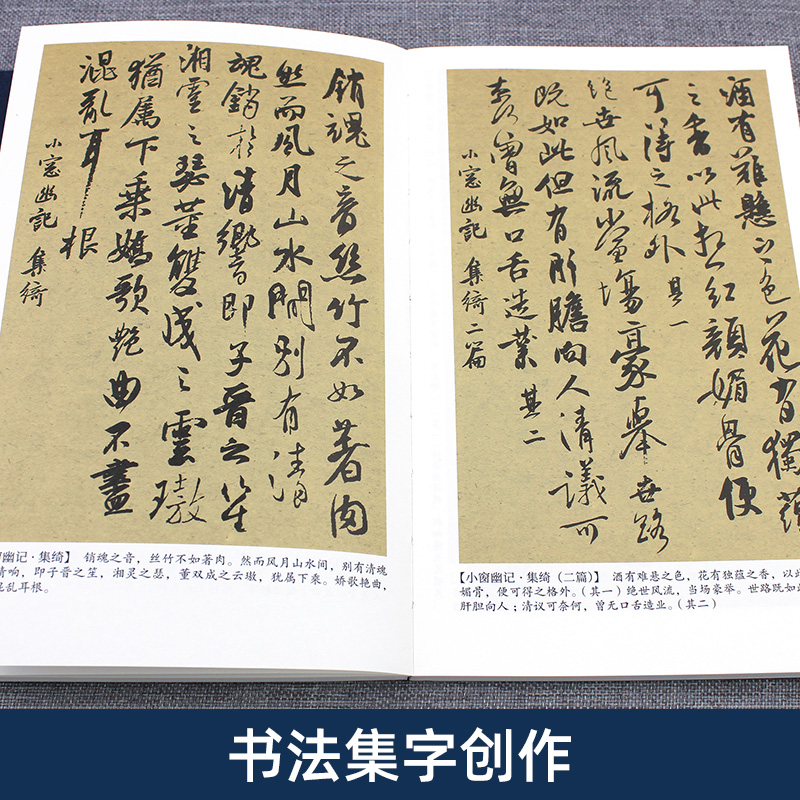 銷魂之音絲竹不如著肉
然而風月山水間別有清
魂銷於清響即子晉之笙
湘靈之瑟董雙成之雲璈
猶屬下乘嬌歌艷曲不盡
混亂耳根
小窓幽記 集綺
幽记·集绮】 销魂之音，丝竹不如著肉。然而风月山水间，别有清魂
清响，即子晋之笙，湘灵之瑟，董双成之云璈，犹属下乘。娇歌艳曲，
混乱耳根。
酒有難懸之色花有獨蘊
之香以此想紅顏媚骨便
可得之格外 其一
絕世風流當場豪舉世路
既如此但有肝膽向人清議可
奈何曾無口舌造業 其二
小窓幽記 集綺二篇
【小窗幽记·集绮（二篇）】 酒有难悬之色，花有独蕴之香，以此
媚骨，便可得之格外。（其一）绝世风流，当场豪举。世路既如
肝胆向人；清议可奈何，曾无口舌造业。（其二）
书法集字创作